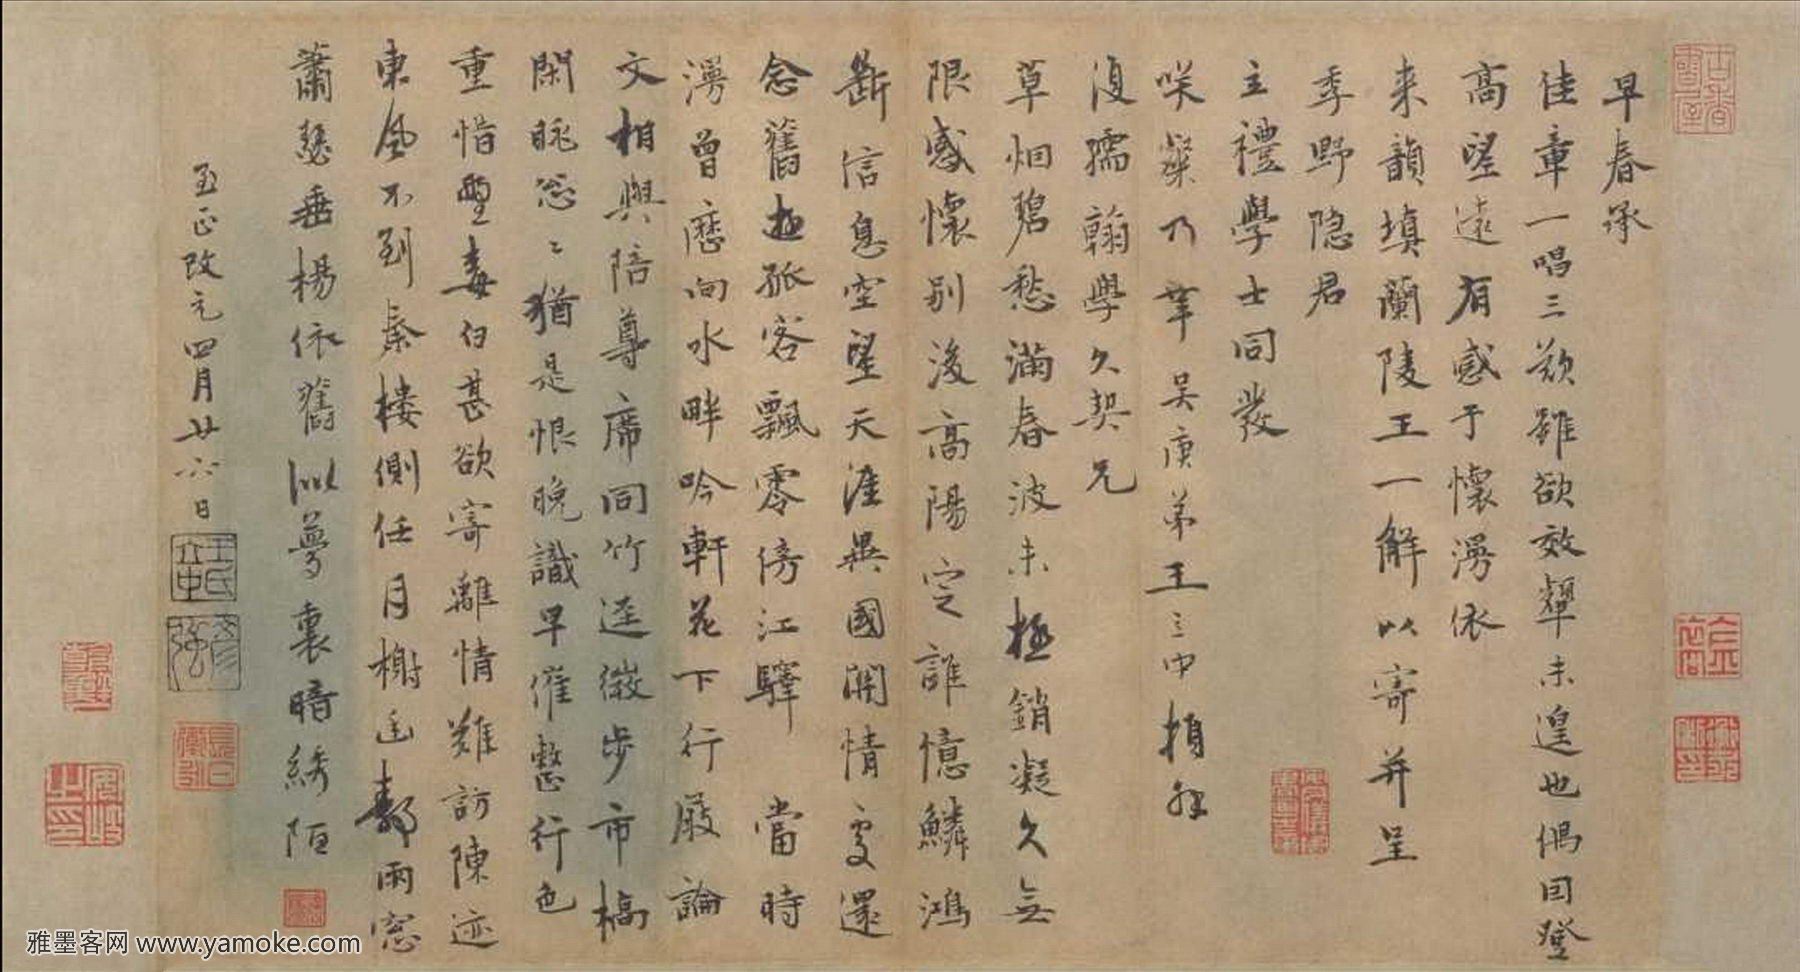 早春承
佳章一唱三歎雖欲效顰未遑也偶因登
高望遠有感于懷漫依
来韻填蘭陵王一解以寄并呈
季野隐君
立禮學士同發
咲粲乃幸吴庚弟王立中頓
復孺翰學久契兄
草烟碧愁滿春波未極銷凝久無
限感懷别後高陽定誰憶鱗鴻
斷信息空望天涯異國關情處還
念舊遊孤客飄零傍江驛 當時
漫曾歷向水畔吟軒花下行廚論
文相與陪尊席同竹逕微步市橋
閑眺忩〻猶是恨晚識早催整行色
重惜鬢毒白甚欲寄離情難訪陳迹
東風不到秦樓側任月榭雨窓
蕭瑟垂楊依舊似夢裏暗綉陌
至正改元四月廿六日
王氏立中
彦强
雅墨客网 www.yamoke.com